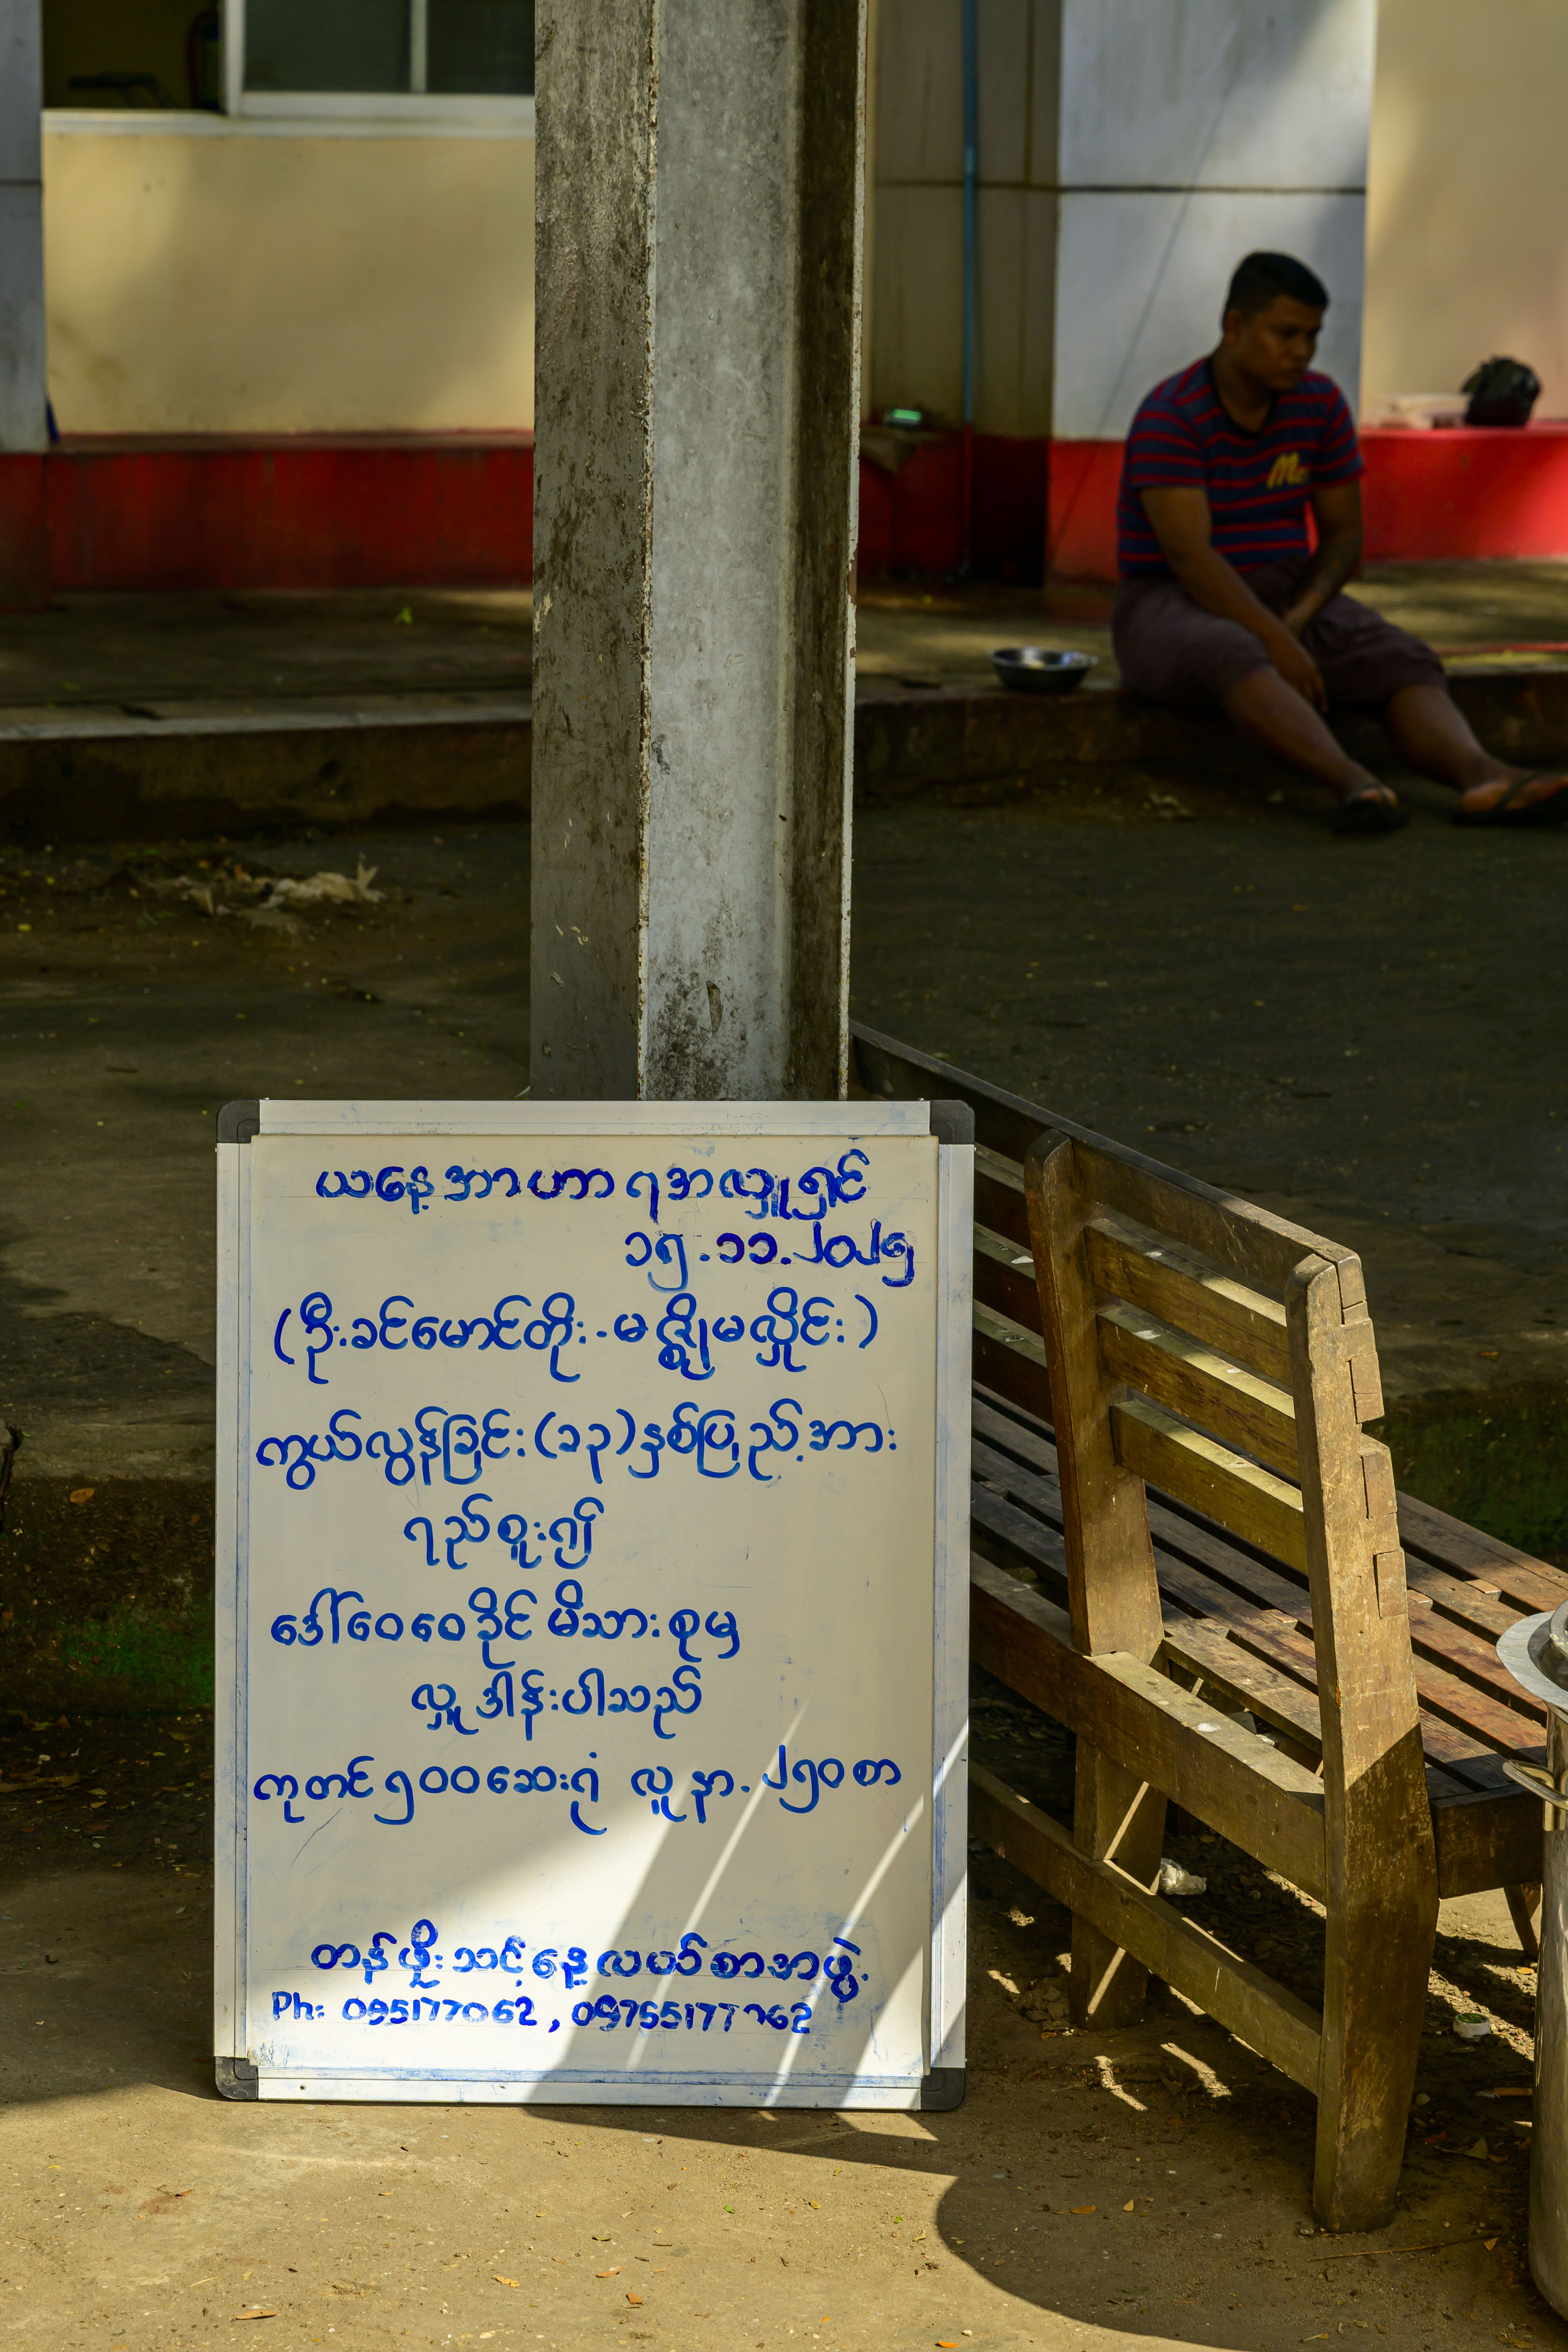 ယနေ့အာဟာရအလှူရှင်
၁၅.၁၁.၂၀၂၅
(ဦးခင်မောင်တိုး-မဇ္ဈိုမလှိုင်း)
ကွယ်လွန်ခြင်း(၁၃)နှစ်ပြည့်အား
ရည်စူး၍
ဒေါ်ဝေဝေခိုင်မိသားစုမှ
လှူဒါန်းပါသည်
ကုတင်၅၀၀ဆေးရုံ လူနာ.၂၅၀စာ
တန်ဖိုးသင့်နေ့လယ်စာအဖွဲ့.
Ph: 095177062,